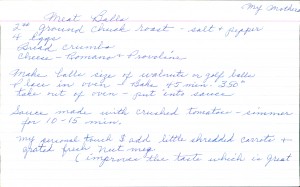 My Mothers
Meat Balls
2 lbs ground chuck roast - salt & pepper
4 eggs
Bread crumbs
Cheese - Romano & Provolone
Make balls size of walnuts or golf balls
& place in oven - Bake 45 min. 350°
take out of oven - put into sauce
Sauce made with crushed tomatoes - simmer
for 10-15 min.
my personal touch I add little shredded carrots &
grated fresh nut meg
(improves the taste which is great